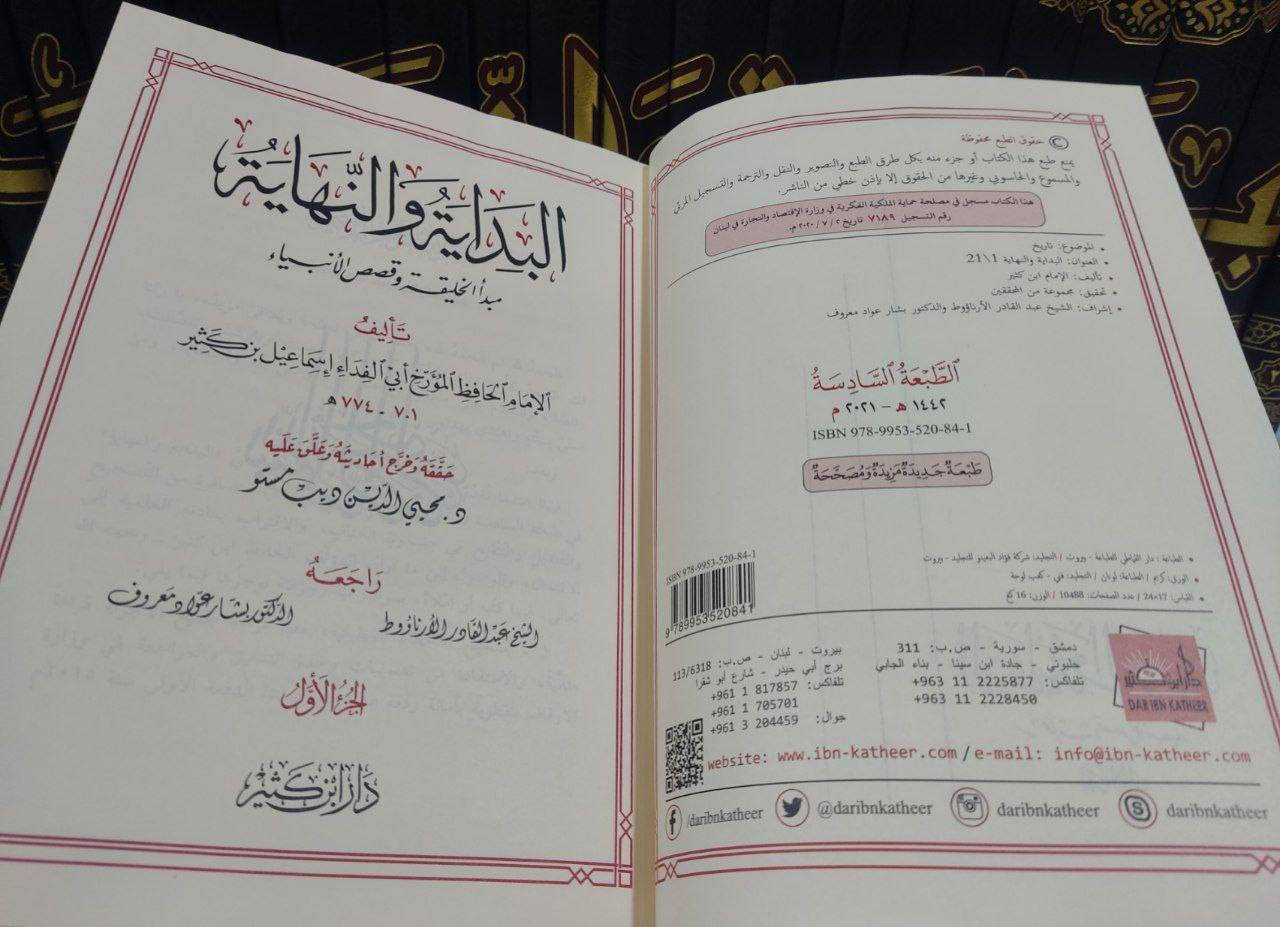 البِدَايَةُ وَالنِّهَايَةُ
مبدأ الخليقة وقصص الأنبياء
تَأليفُ
الإمَامِ الحَافِظِ المُؤَرِّخِ أبي الفِدَاءِ إسمَاعِيل بن كَثِير
٧٠١ - ٧٧٤ ه
حَقَّقَهُ وَخَرَّجَ أحَاديثَهُ وَعَلَّقَ عَلَيه
د. محيي الدّين ديب مستو
رَاجَعَهُ
الشيخ عَبد القَادر الأرنَاؤوط الدكتور بشار عَوّاد مَعرُوف
الجزء الأوّل
دَار ابن كَثير
© حقوق الطبع محفوظة
يمنع طبع هذا الكتاب أو جزء منه بكل طرق الطبع والتصوير والنقل والترجمة والتسجيل المرئي
والمسموع والحاسوبي وغيرها من الحقوق إلا بإذن خطي من الناشر.
هذا الكتاب مسجل في مصلحة حماية الملكية الفكرية في وزارة الإقتصاد والتجارة في لبنان
رقم التسجيل ٧١٨٩ تاريخ ٢ / ٧ / ٢٠٢٠ م.
• الموضوع: تاريخ
• العنوان: البداية والنهاية 1\21
• تأليف: الإمام ابن كثير
• تحقيق: مجموعة من المحققين
• إشراف: الشيخ عبد القادر الأرناؤوط والدكتور بشار عواد معروف
الطَّبْعَةُ السَّادِسَةُ
١٤٤٢ هـ - ٢٠٢١ م
ISBN 978-9953-520-84-1
طَبْعَةٌ جَدِيدَةٌ مَزِيدَةٌ وَمُصَحَّحَةٌ
• الطباعة: دار القماطي للطباعة - بيروت / التجليد: شركة فؤاد البعينو للتجليد - بيروت
• الورق: كريم / الطباعة: لونان / التجليد: فني - كعب لوحة
• القياس: 17×24 / عدد الصفحات: 10488 / الوزن: 16 كغ
ISBN 978-9953-520-84-1
9 789953 520841
دمشق - سورية - ص.ب: 311
حلبوني - جادة ابن سينا - بناء الجابي
تلفاكس: 2225877 11 963+
+963 11 2228450
بيروت - لبنان - ص.ب: 113/6318
برج أبي حيدر - شارع أبو شقرا
تلفاكس: 817857 1 961+
+961 1 705701
جوال: 204459 3 961+
دار ابن كثير
DAR IBN KATHEER
website: www.ibn-katheer.com / e-mail: info@ibn-katheer.com
/daribnkatheer @daribnkatheer daribnkatheer daribnkatheer